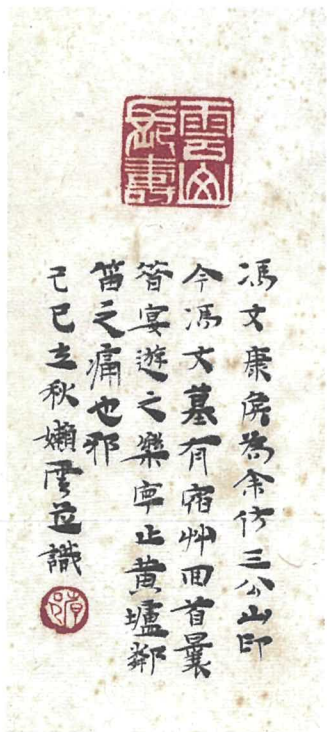 雲山
長壽
馮文康矦為余仿三公山印
今馮文墓有宿艸囬首曩
㫺宴遊之樂寧止黃壚鄰
笛之痛也邪
己巳立秋嬾雲並識